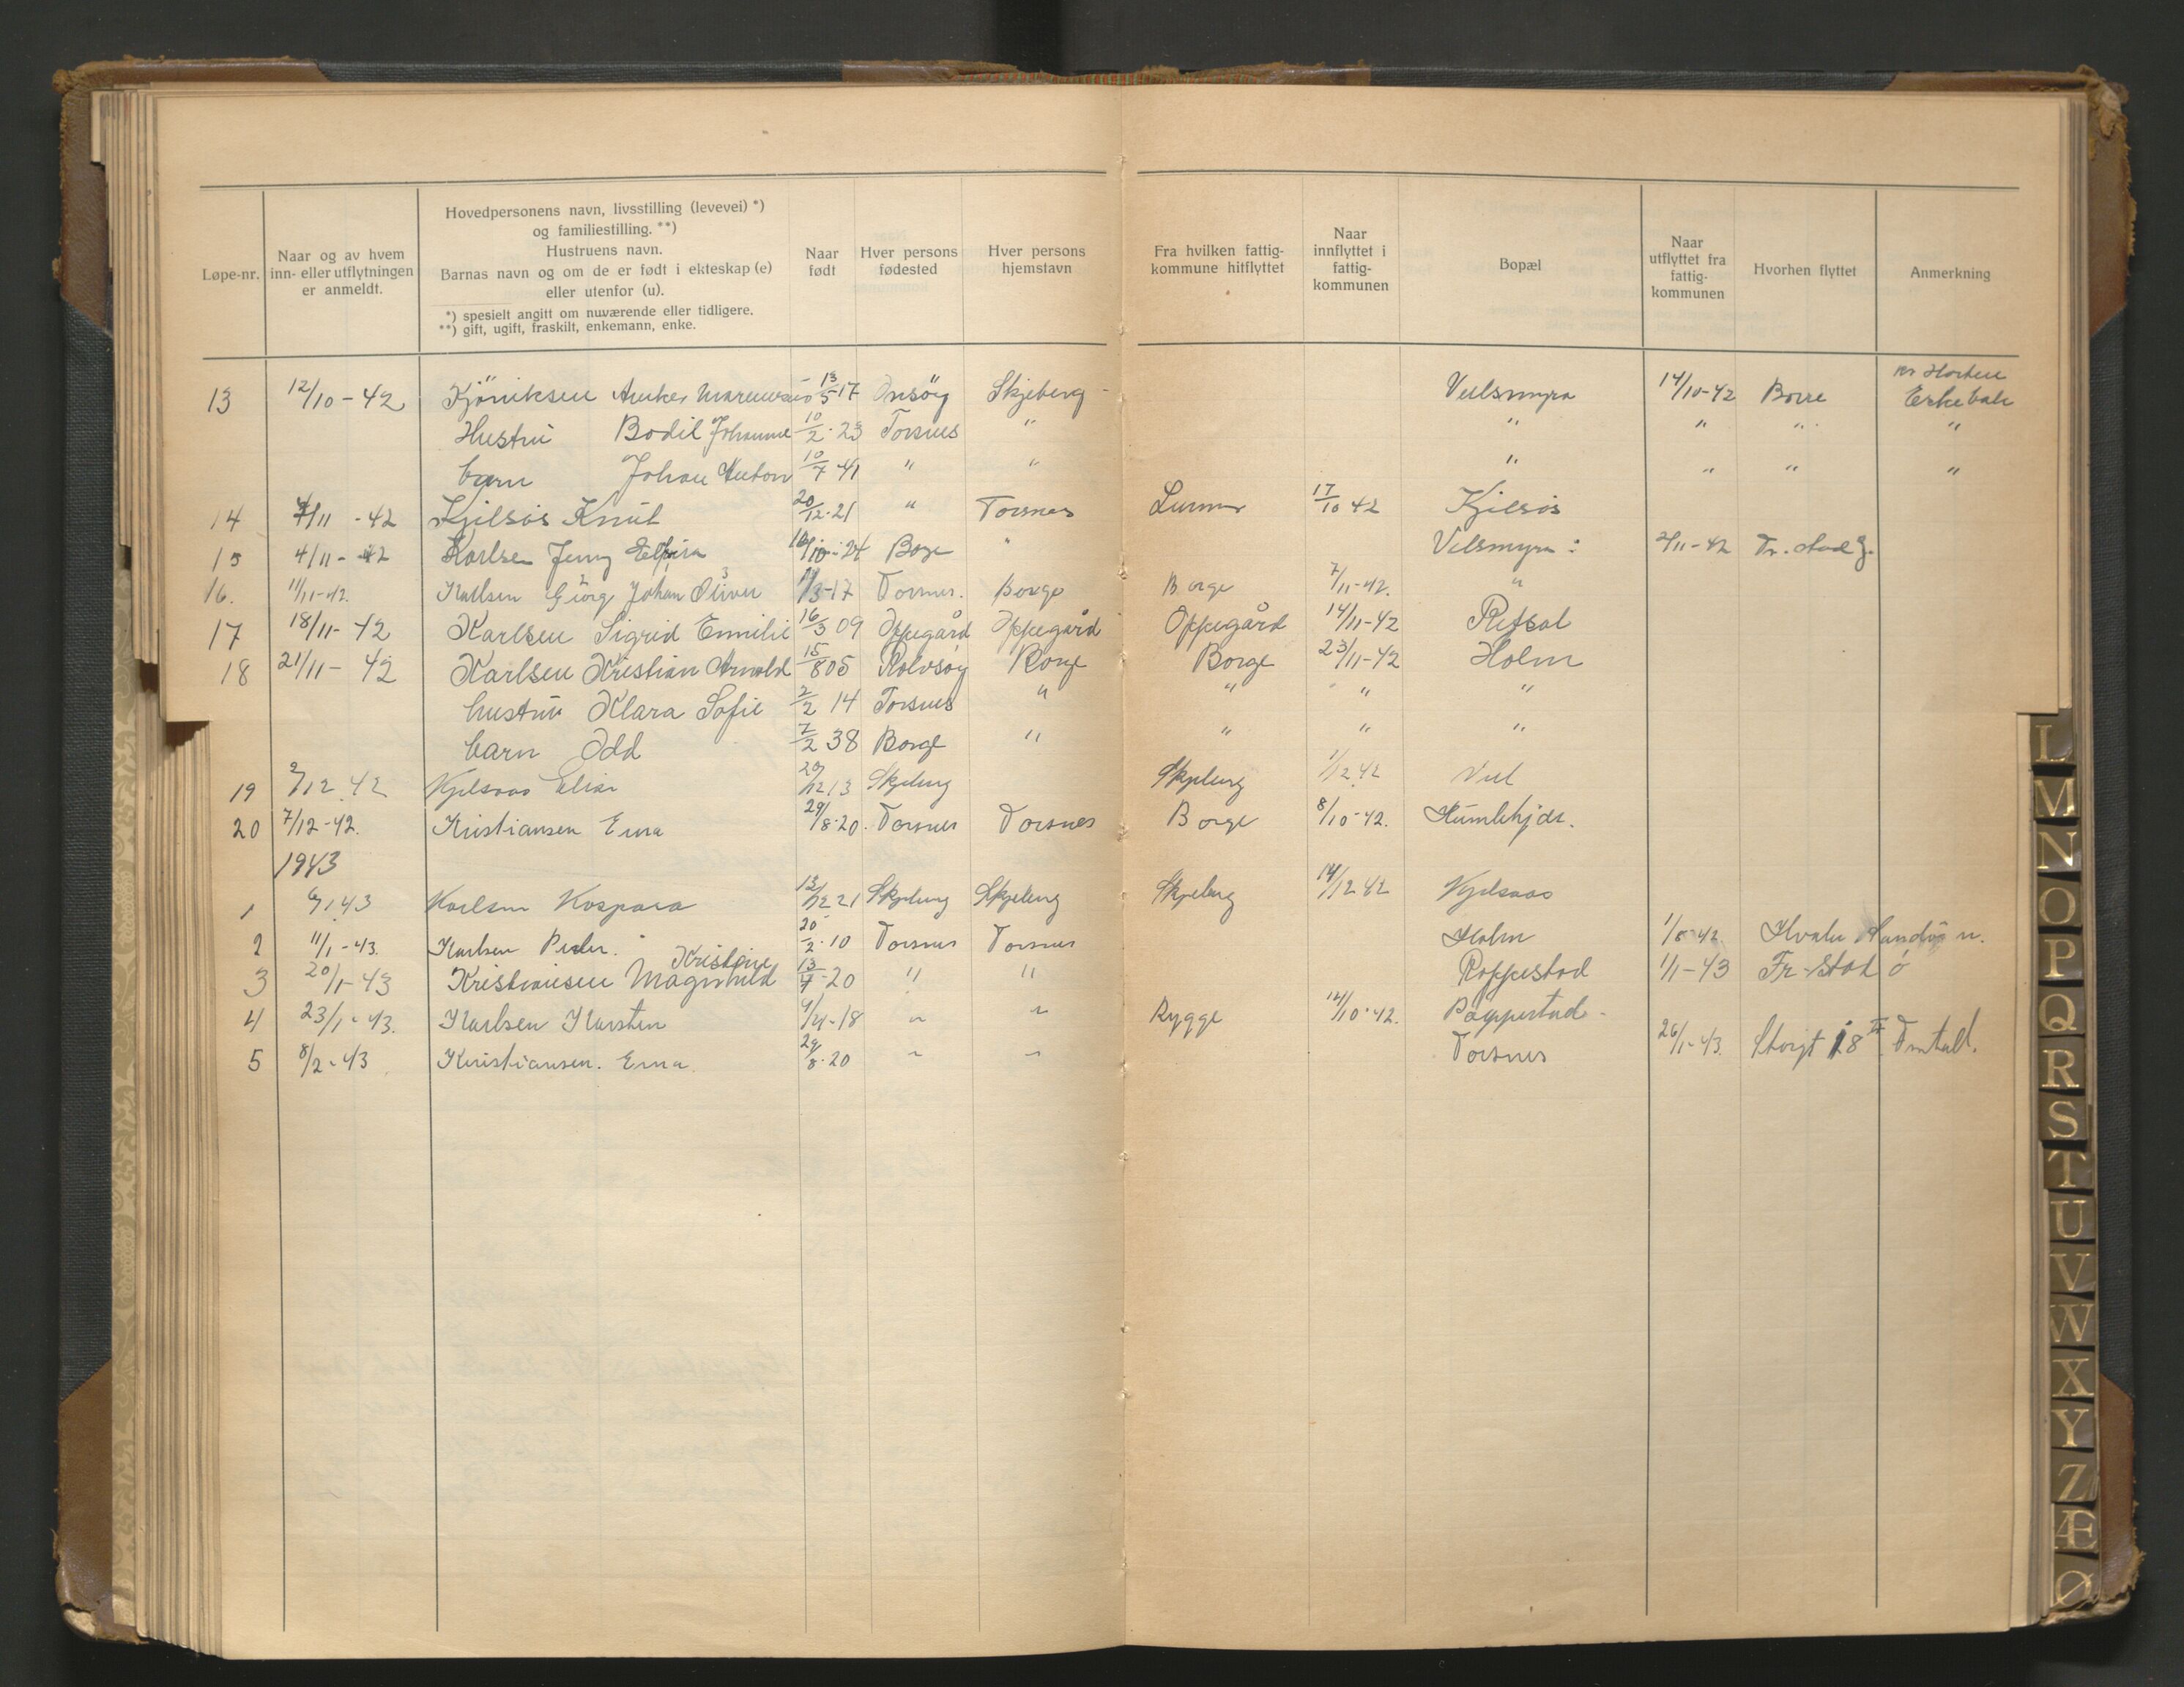 Løpe-nr.
Naar og av hvem
inn- eller utflytningen
er anmeldt.
Hovedpersonens navn, livsstilling (levevei) *)
og familiestilling. **)
Hustruens navn.
Barnas navn og om de er født i ekteskap (e)
eller utenfor (u).
*) spesielt angitt om nuværende eller tidligere.
**) gift, ugift, fraskilt, enkemann, enke.
Naar
født
Hver persons
fødested
Hver persons
hjemstavn
Fra hvilken fattig-
kommune hitflyttet
Naar
innflyttet i
fattig-
kommunen
Bopæl
Naar
utflyttet fra
fattig-
kommunen
Hvorhen flyttet
Anmerkning
13 12/10-42 13/5 17 Onsöy Skjeberg Vulsmyra 14/10-42 Borre
Hustru Bodil Johanne 10/2-23 Torsnes " " " " "
barn Johan Anton 10/7 41 " " " " " "
14 7/11-42 Kjilsös Knut 20/12-21 " Torsnes 17/10 42 Kjilsös
15 4/11-42 Karlsen Jenny 24 Borge " Velsmyra 2/11-42
16. 11/11-42. Karlsen Georg Johan Oliver 17 Torsnes. Borge Borge 7/11-42. "
17 18/11-42 Karlsen Sigrid Emilie 16/3 09 Oppegård Oppegård Oppegård 14/11-42 Refsal
18 21/11-42 Karlsen Kristian Arnold 15/8 05 Rolvsöy Borge Borge 23/11-42 Holm
hustru Klara Sofie 2/2 14 Torsnes " " " "
barn Odd 7/2 38 Borge " " " "
19 9/12 42 Kjelsaas 13 Skjeberg Skjeberg 1/12 42
20 7/12-42. Kristiansen Erna 29/8-20. Torsnes Torsnes Borge 8/10-42.
1943
1 6/1 43 Karlsen Kaspara 12/12 21 Skjeberg Skjeberg Skjeberg 14/12 42 Kjelsaas
2 11/1-43. Karlsen Peder. 20/2-10 Torsnes Torsnes Holm 1/8-42
Kristine
3 20/1-43 Kristiansen Magnhild 13/7-20 " " Roppestad 1/1-43 Fr-stad ö
4 23/1-43. Karlsen Karsten 4/4-18 " " Rygge 14/10-42. Roppestad
5 8/2-43 Kristiansen. Erna 29/8-20 " " Torsnes 26/1-43.
L
M
N
O
P
Q
R
S
T
U
V
W
X
Y
Z
Æ
Ø